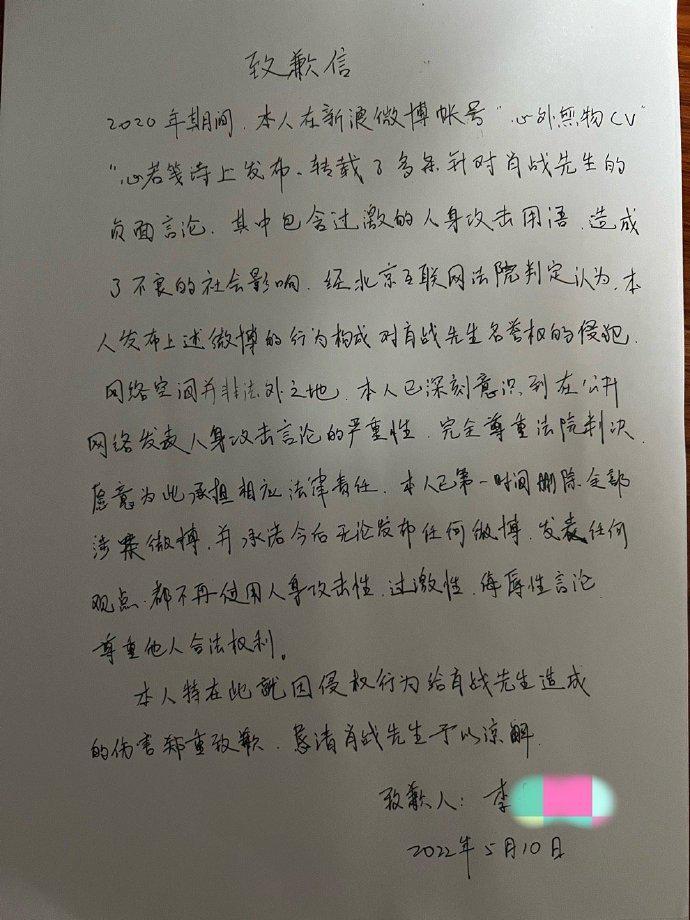 致歉信
2020年期间，本人在新浪微博帐号“心外無物CV”
“心若笺诗上发布、转载了多条针对肖战先生的
负面言论，其中包含过激的人身攻击用语，造成
了不良的社会影响，经北京互联网法院判定认为，本
人发布上述微博的行为构成对肖战先生名誉权的侵犯.
网络空间并非法外之地，本人已深刻意识到在公开
网络发表人身攻击言论的严重性，完全尊重法院判决，
愿意为此承担相应法律责任，本人已第一时间删除全部
涉案微博，并承诺今后无论发布任何微博，发表任何
观点，都不再使用人身攻击性，过激性，侮辱性言论
尊重他人合法权利。
本人特在此就因侵权行为给肖战先生造成
的伤害郑重致歉，恳请肖战先生予以谅解.
致歉人：李
2022年5月10日